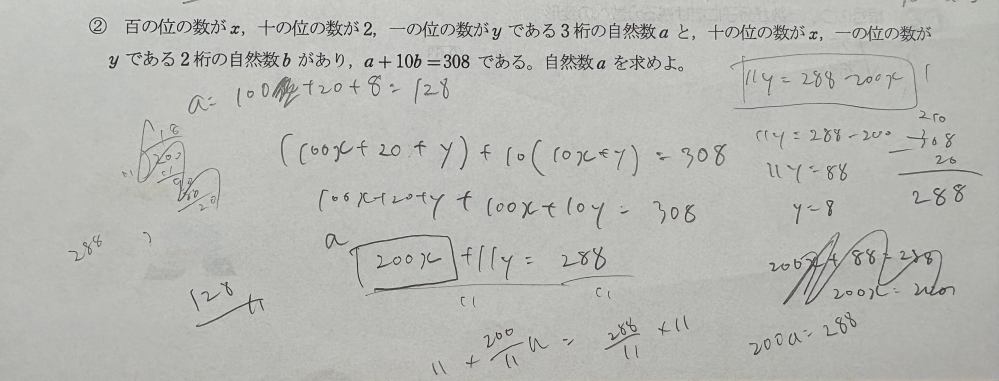 ② 百の位の数がx，十の位の数が2，一の位の数がyである3桁の自然数aと，十の位の数がx，一の位の数が
yである2桁の自然数bがあり，a+10b=308である。自然数aを求めよ。
a= 100 +20+8=128
(100x+20+y)+10(10x+y)=308
100x+20+y+100x+10y=308
a
200x+11y=288
11 11
11× 200/11 a = 288/11 ×11
288
128
11y=288-200x
11y=288-200
11y=88
y=8
210
308
20
288
200x+88=288
200x=200
200a=288